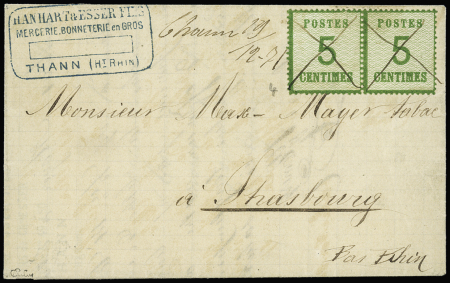 HANHART & ESSER FILS
MERCERIE, BONNETERIE EN GROS
THANN (HT RHIN)
Thann 19
12-71
POSTES
5
CENTIMES
POSTES
5
CENTIMES
4
Monsieur Max-Mayer tabac
à Strasbourg
Bas Rhin